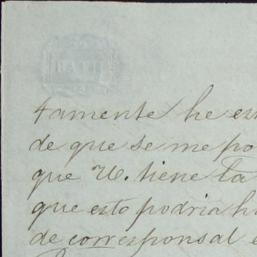 BATH
tamente he es
de que se me po
que U. tiene la
que esto podria h
de corresponsal e